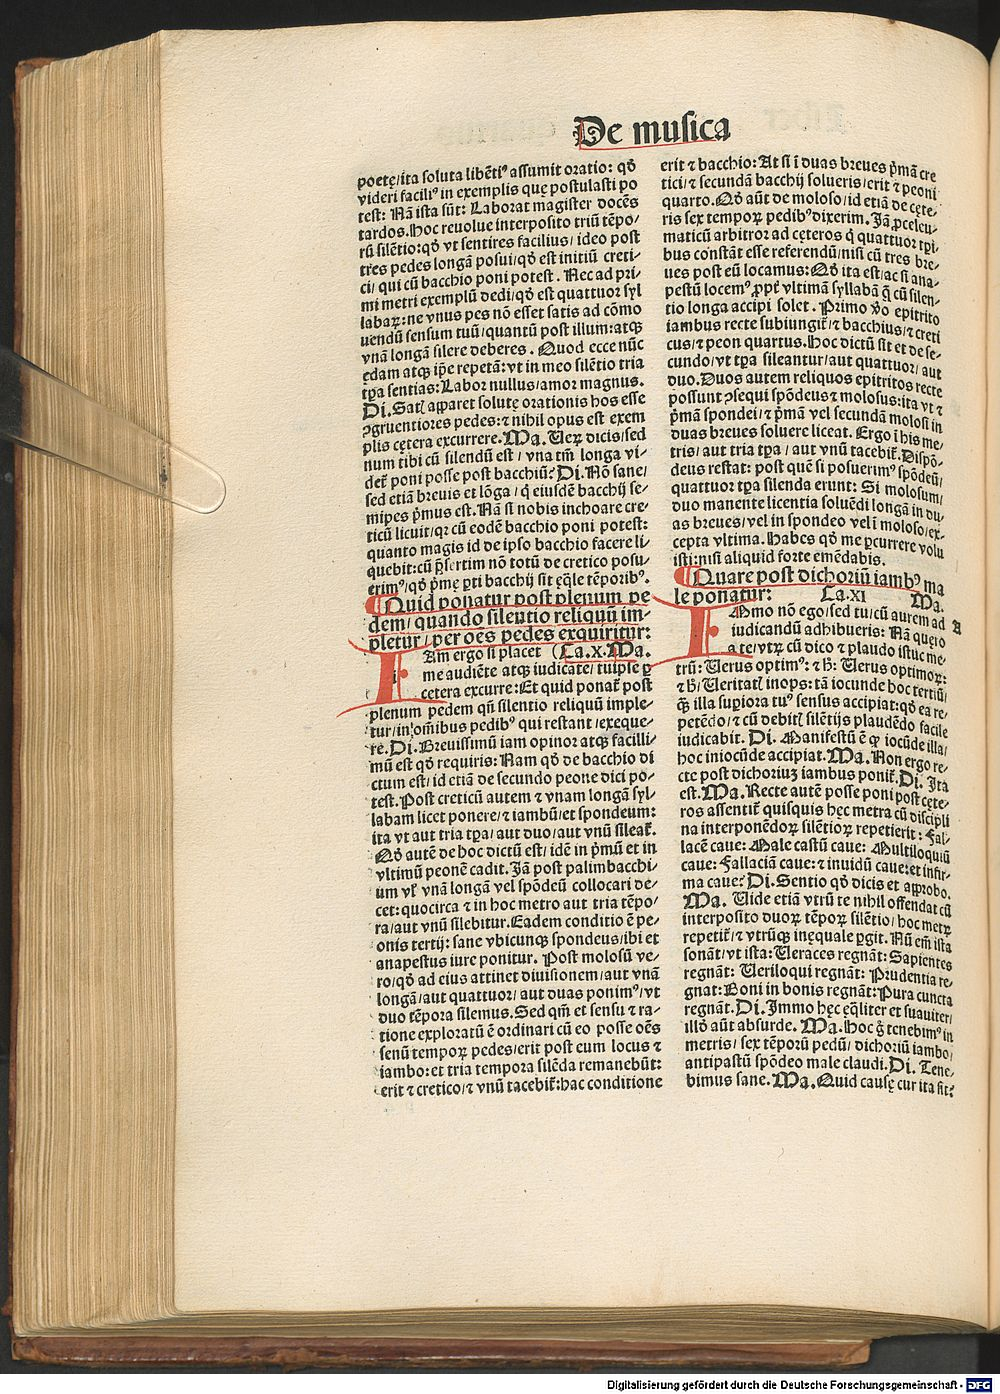 De musica
poetę/ita soluta libẽtiꝰ assumit oratio: qð
videri faciliꝰ in exemplis quę postulasti po
test: Nã ista sũt: Laborat magister docẽs
tardos. Hoc reuolue interposito triũ tẽpo-
rũ silẽtio: qð vt sentires facilius/ ideo post
tres pedes longã posui/ qð est initiũ creti-
ci/ qui cũ bacchio poni potest. Nec ad pri-
mi metri exemplũ dedi/ qð est quattuor syl
labaꝝ: ne vnus pes nõ esset satis ad cõmo
uendũ sensum tuũ/ quantũ post illum: atqꝫ
vnã longã silere deberes. Quod ecce nũc
ędam atqꝫ ip̃e repetã: vt in meo silẽtio tria
tꝑa sentias: Labor nullus/ amor magnus.
Di. Satꝭ apparet solutę orationis hos esse
ꝯgruentiores pedes: ⁊ nihil opus est exem
plis cętera excurrere. Ma. Ueꝝ dicis/ sed
num tibi cũ silendũ est/ vna tm̃ longa vi-
det᷑ poni posse post bacchiũ? Di. Nõ sane/
sed etiã breuis et lõga/ q̃ eiusdẽ bacchij se-
mipes p̃mus est. Nã si nobis inchoare cre-
ticũ licuit/ qꝛ cũ eodẽ bacchio poni potest:
quanto magis id de ipso bacchio facere li-
quebit: cũ p̃sertim nõ totũ de cretico posu-
erimꝰ/ qð p̃mę ꝑti bacchij sit ęq̃le tẽporibꝰ.
Quid ponatur post plenum pe
dem/ quando silentio reliquũ im-
pletur/ per oẽs pedes exquiritur:
IAm ergo si placet (Ca. x. Ma.
me audiẽte atqꝫ iudicate/ tuiple ꝑ
cetera excurre: Et quid ponat᷑ post
plenum pedem qñ silentio reliquũ imple-
tur/ in om̃ibus pedibꝰ qui restant/ exeque-
re. Di. Breuissimũ iam opinor atqꝫ facilli-
mũ est qð requiris: Nam qð de bacchio di
ctum est/ id etiã de secundo peone dici po-
test. Post creticũ autem ⁊ vnam longã syl-
labam licet ponere/ ⁊ iambũ/ et spondeum:
ita vt aut tria tꝑa/ aut duo/ aut vnũ sileat᷑.
Qð autẽ de hoc dictũ est/ idẽ in p̃mũ et in
vltimũ peonẽ cadit. Jã post palimbacchi-
um vꝉ vnã longã vel spõdeũ collocari de-
cet: quocirca ⁊ in hoc metro aut tria tẽpo-
ra/ aut vnũ silebitur. Eadem conditio ẽ pe-
onis tertij: sane vbicunqꝫ spondeus/ ibi et
anapestus iure ponitur. Post molosũ ve-
ro/ qð ad eius attinet diuisionem/ aut vnã
longã/ aut quattuor/ aut duas ponimꝰ/ vt
duo tẽpora silemus. Sed qm̃ et sensu ⁊ ra-
tione exploratũ ẽ ordinari cũ eo posse oẽs
senũ tempoꝝ pedes/ erit post eum locus ⁊
iambo: et tria tempora silẽda remanebũt:
erit ⁊ cretico/ ⁊ vnũ tacebit᷑: hac conditione
erit ⁊ bacchio: At si ĩ duas breues p̃mã cre
tici/ ⁊ secundã bacchij solueris/ erit ⁊ peoni
quarto. Qð aũt de moloso/ id etiã de cęte-
ris sex tempoꝝ pedibꝰ dixerim. Jã ꝓceleu-
maticũ arbitror ad cęteros q̃ quattuor tꝑi-
bus constãt esse referendũ/ nisi cũ tres bre-
ues post eũ locamus: Qð ita est/ ac si ana-
pestũ locemꝰ ꝓpt᷑ vltimã syllabã q̃ cũ silen-
tio longa accipi solet. Primo v̊o epitrito
iambus recte subiungit᷑/ ⁊ bacchius/ ⁊ creti
cus/ ⁊ peon quartus. Hoc dictũ sit et de se-
cundo/ vt tꝑa sileantur/ aut quattuor/ aut
duo. Duos autem reliquos epitritos recte
possunt ꝯsequi spõdeus ⁊ molosus: ita vt ⁊
p̃mã spondei/ ⁊ p̃mã vel secundã molosi in
duas breues soluere liceat. Ergo ĩ his me-
tris/ aut tria tꝑa/ aut vnũ tacebit᷑. Dispõ-
deus restat: post quẽ si posuerimꝰ spõdeũ/
quattuor tꝑa silenda erunt: Si molosum/
duo manente licentia soluẽdi longã in du-
as breues/ vel in spondeo vel ĩ moloso/ ex-
cepta vltima. Habes qð me ꝑcurrere volu
isti: nisi aliquid forte emẽdabis.
Quare post dichoriũ iambꝰ ma
le ponatur: Ca. XI Ma.
IMmo nõ ego/ sed tu/ cũ aurem ad A
iudicandũ adhibueris: Nã quęro
a te/ vtꝝ cũ dico ⁊ plaudo istuc me-
trũ: Uerus optimꝰ: ⁊ hͦ: Uerus optimoꝝ:
⁊ hͦ/ Ueritatꝭ inops: tã iocunde hoc tertiũ/
qꝫ illa supiora tuꝰ sensus accipiat: qð ea re-
petẽdo/ ⁊ cũ debitꝭ silẽtijs plaudẽdo facile
iudicabit. Di. Manifestũ ẽ ꝙ iocũde illa/
hoc iniocũde accipiat. Ma. Non ergo re-
cte post dichoriuꝫ iambus ponit᷑. Di. Ita
est. Ma. Recte autẽ posse poni post cęte-
ros assentit᷑ quisquis hęc metra cũ discipli
na interponẽdoꝝ silẽtioꝝ repetierit: Fal-
lacẽ caue: Male castũ caue: Multiloquiũ
caue: Fallaciã caue: ⁊ inuidũ caue: et infir-
ma caue: Di. Sentio qð dicis et approbo.
Ma. Uide etiã vtrũ te nihil offendat cũ
interposito duoꝝ tẽpoꝝ silẽtio/ hoc metꝝ
repetit᷑/ ⁊ vtrũqꝫ inęquale ꝑgit. Nũ em̃ ista
sonãt/ vt ista: Ueraces regnãt: Sapientes
regnãt: Ueriloqui regnãt: Prudentia re-
gnat: Boni in bonis regnãt: Pura cuncta
regnãt. Di. Immo hęc eq̃liter et suauiter/
illð aũt absurde. Ma. Hoc g̊ tenebimꝰ in
metris/ sex tẽporũ pedũ/ dichoriũ iambo/
antipastũ spõdeo male claudi. Di. Tene-
bimus sane. Ma. Quid causę cur ita sit:
Digitalisierung gefördert durch die Deutsche Forschungsgemeinschaft - DFG